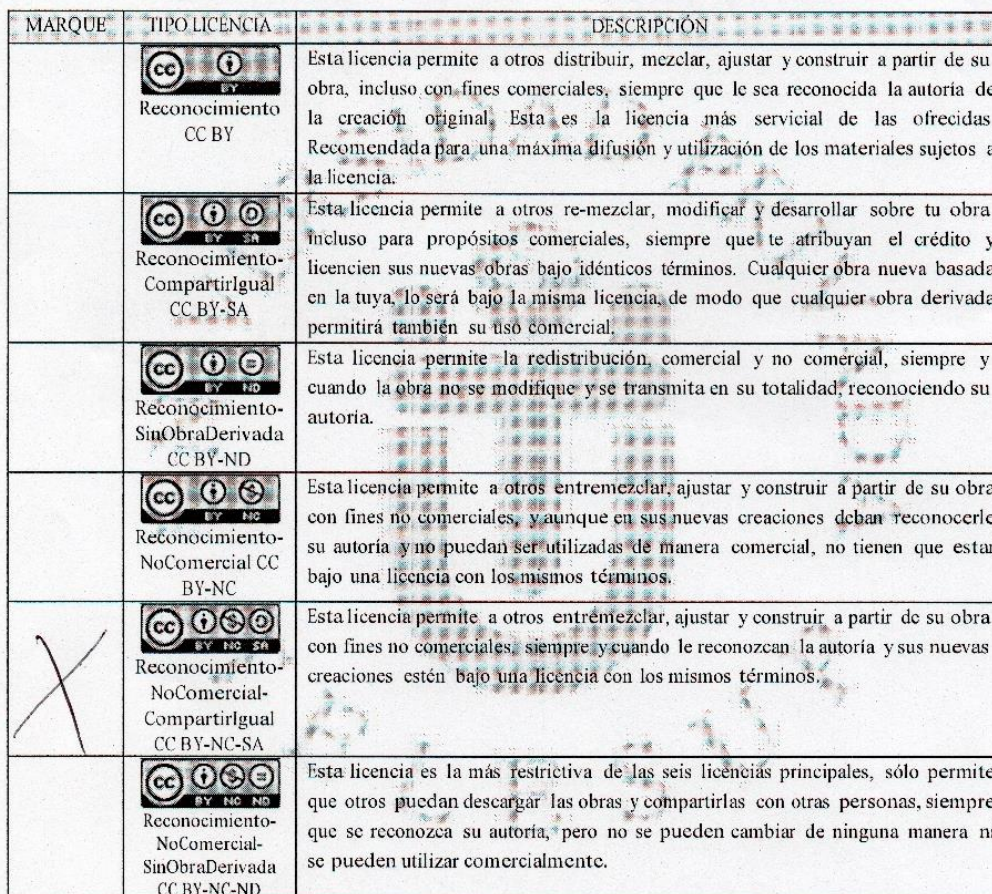 MARQUE TIPO LICENCIA DESCRIPCIÓN
cc BY
Reconocimiento
CC BY
Esta licencia permite a otros distribuir, mezclar, ajustar y construir a partir de su
obra, incluso con fines comerciales, siempre que le sea reconocida la autoría de
la creación original. Esta es la licencia más servicial de las ofrecidas.
Recomendada para una máxima difusión y utilización de los materiales sujetos a
la licencia.
cc BY SA
Reconocimiento-
CompartirIgual
CC BY-SA
Esta licencia permite a otros re-mezclar, modificar y desarrollar sobre tu obra
incluso para propósitos comerciales, siempre que te atribuyan el crédito y
licencien sus nuevas obras bajo idénticos términos. Cualquier obra nueva basada
en la tuya, lo será bajo la misma licencia, de modo que cualquier obra derivada
permitirá también su uso comercial.
cc BY ND
Reconocimiento-
SinObraDerivada
CC BY-ND
Esta licencia permite la redistribución, comercial y no comercial, siempre y
cuando la obra no se modifique y se transmita en su totalidad, reconociendo su
autoría.
cc BY NC
Reconocimiento-
NoComercial CC
BY-NC
Esta licencia permite a otros entremezclar, ajustar y construir a partir de su obra
con fines no comerciales, y aunque en sus nuevas creaciones deban reconocerle
su autoría y no puedan ser utilizadas de manera comercial, no tienen que estar
bajo una licencia con los mismos términos.
X
cc BY NC SA
Reconocimiento-
NoComercial-
CompartirIgual
CC BY-NC-SA
Esta licencia permite a otros entremezclar, ajustar y construir a partir de su obra
con fines no comerciales, siempre y cuando le reconozcan la autoría y sus nuevas
creaciones estén bajo una licencia con los mismos términos.
cc BY NC ND
Reconocimiento-
NoComercial-
SinObraDerivada
CC BY-NC-ND
Esta licencia es la más restrictiva de las seis licencias principales, sólo permite
que otros puedan descargar las obras y compartirlas con otras personas, siempre
que se reconozca su autoría, pero no se pueden cambiar de ninguna manera ni
se pueden utilizar comercialmente.